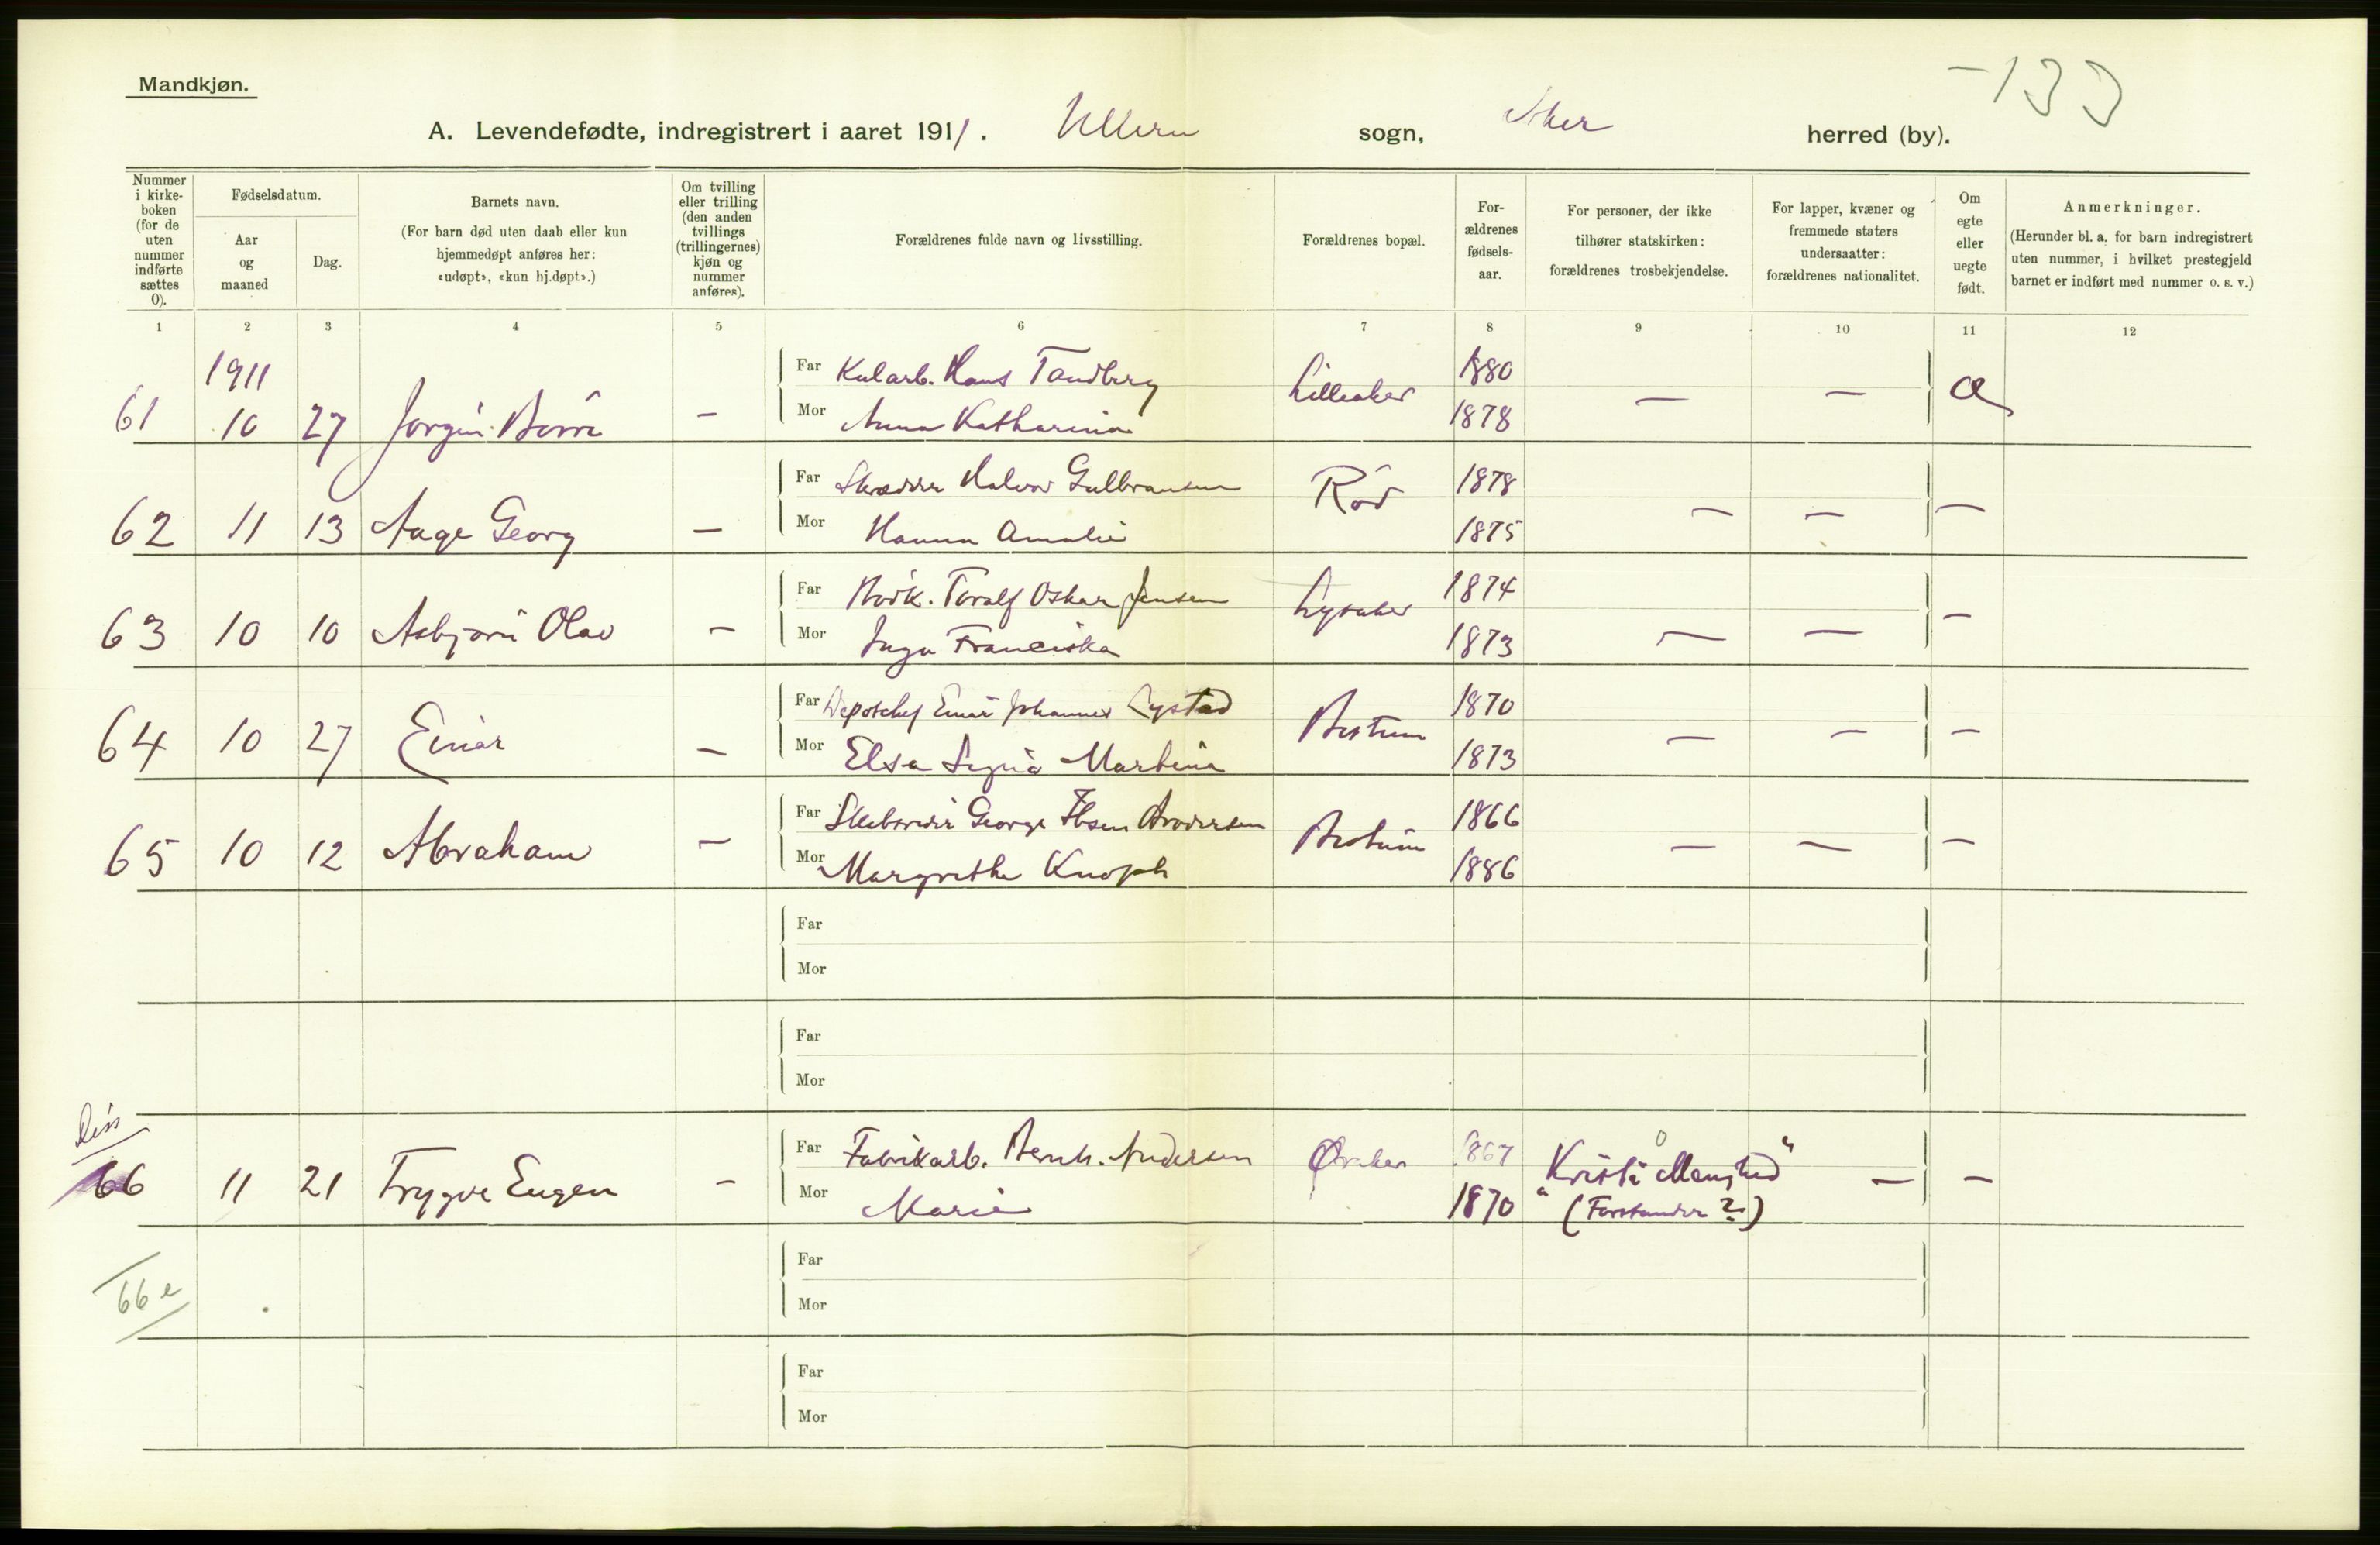 -133
Mandkjøn.
A. Levendefødte, indregistrert i aaret 1911. Ullern sogn, Aker herred (by).
Nummer i kirke-boken (for de uten nummer indførte sættes 0).
Fødselsdatum.
Aar og maaned
Dag.
Barnets navn.
(For barn død uten daab eller kun hjemmedøpt anføres her: «udøpt», «kun hj.døpt».)
Om tvilling eller trilling (den anden tvillings (trillingernes) kjøn og nummer anføres).
Forældrenes fulde navn og livsstilling.
Forældrenes bopæl.
For-ældrenes fødsels-aar.
For personer, der ikke tilhører statskirken: forældrenes trosbekjendelse.
For lapper, kvæner og fremmede staters undersaatter: forældrenes nationalitet.
Om egte eller uegte født.
Anmerkninger.
(Herunder bl. a. for barn indregistrert uten nummer, i hvilket prestegjeld barnet er indført med nummer o. s. v.)
1 2 3 4 5 6 7 8 9 10 11 12
1911
Far Hans Tandberg Lilleaker 1880
61 10 27 Jørgen Børre - - - æ
Mor Anna Katharina 1878
Far Skrædder Halvor Gulbransen Rød 1878
62 11 13 Aage Georg - - - -
Mor Hanna Amalie 1875
Far Toralf Oskar Jensen Lysaker 1874
63 10 10 Asbjørn Olav - - - -
Mor Inga Franciska 1873
Far Depotchef Einar Johannes Lystad Bestum 1870
64 10 27 Einar - - - -
Mor Elsa Signe Martine 1873
Far Skibsreder George Ibsen Brodersen Bestum 1866
65 10 12 Abraham - - - -
Mor Margrethe Knoph 1886
Far
Mor
Far
Mor
Diss
Far Fabrikarb. Bernh. Andersen Øraker 1867
66 11 21 Trygve Eugen - "Kristi Menighed" - -
Mor Marie 1870 (Forstander ?)
Far
66 e
Mor
Far
Mor